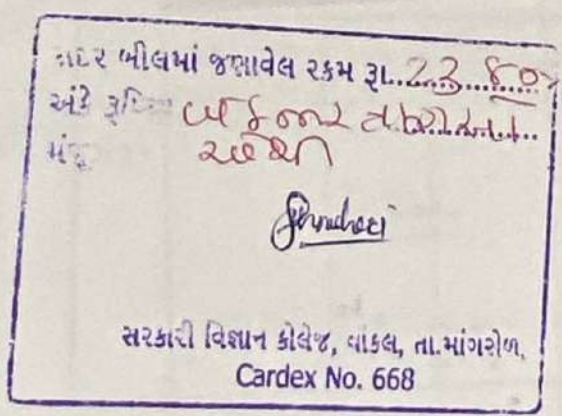 સદર બીલમાં જણાવેલ રકમ રૂા. 2380
અંકે રૂપિયા બે હજાર ત્રણસો
એંશી
સરકારી વિજ્ઞાન કોલેજ, વાંકલ, તા.માંગરોળ,
Cardex No. 668